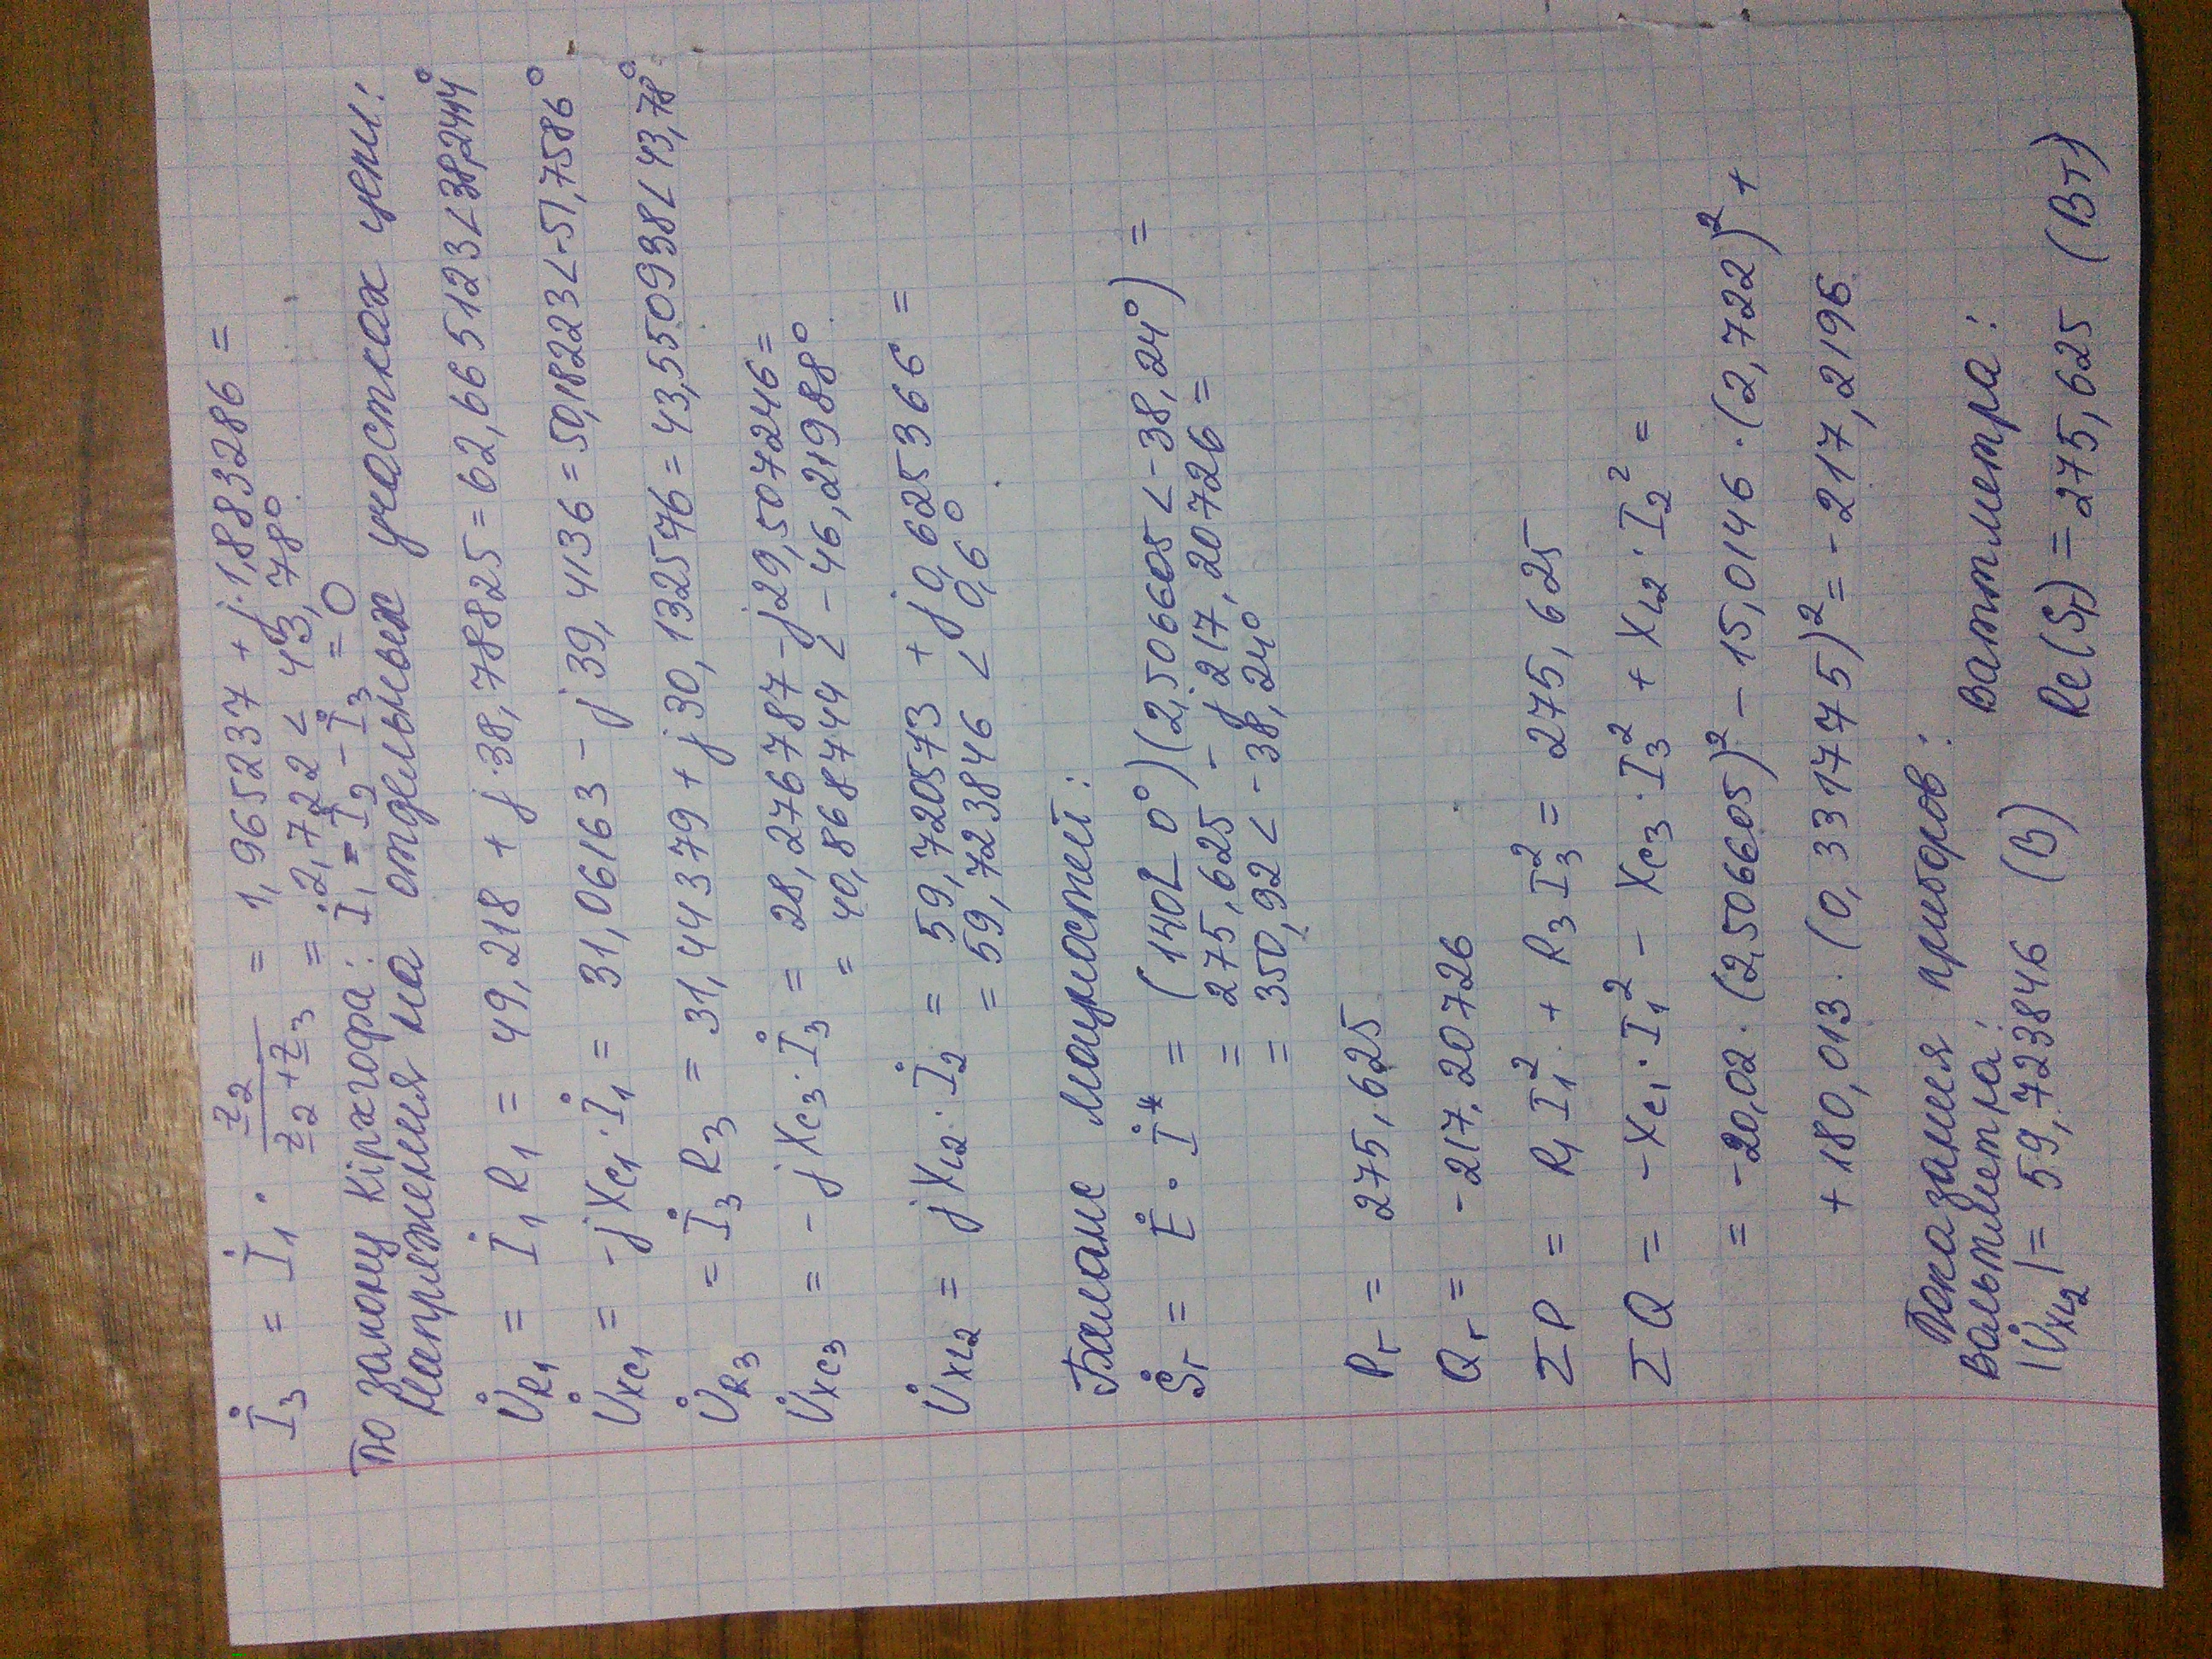 İ₃ = İ₁ · z₂ / (z₂ + z₃) = 1,9652337 + j·1,883286 =
= 2,722 < 43,78°
По закону Кірхгофа: İ₁ = İ₂ - İ₃ = 0
Напряжения на отдельных участках цепи:
U̇R₁ = İ₁R₁ = 49,218 + j·38,78825 = 62,665123<38,2444°
U̇xc₁ = -jXc₁·İ₁ = 31,06163 - j39,4136 = 50,182223<-51,7586°
U̇R₃ = İ₃R₃ = 31,44379 + j30,132546 = 43,550938<43,78°
U̇xc₃ = -jXc₃·İ₃ = 28,276787 - j29,507246 =
= 40,868744 < -46,21988°
U̇xL₂ = jXL₂·İ₂ = 59,720573 + j0,625366 =
= 59,723846 < 0,6°
Баланс мощностей:
Ṡг = Ė · İ* = (140∠0°)(2,506605<-38,24°) =
= 275,625 - j217,20726 =
= 350,92 < -38,24°
Pг = 275,625
Qг = -217,20726
ΣP = R₁I₁² + R₃I₃² = 275,625
ΣQ = -Xc₁·I₁² - Xc₃·I₃² + XL₂·I₂² =
= -20,02·(2,506605)² - 15,0146·(2,722)² +
+ 180,013·(0,331775)² = -217,2196
Показания приборов:
вольтметра: ваттметра:
|U̇xL₂| = 59,723846 (В) Re(Sг) = 275,625 (Вт)